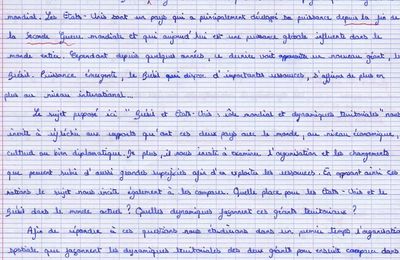 mondial. Les Etats-Unis sont un pays qui a principalement développé sa puissance depuis la fin de
la seconde Guerre mondiale et qui aujourd'hui est une puissance globale influente dans le
monde entier. Cependant depuis quelques années, ce dernier voit apparaître un nouveau géant, le
Brésil. Puissance émergente, le Brésil qui dispose d'importantes ressources, s'affirme de plus en
plus au niveau international...
Le sujet proposé ici "Brésil et Etats-Unis : rôle mondial et dynamiques territoriales" nous
invite à réfléchir aux rapports qu'ont ces deux pays avec le monde, au niveau économique,
culturel ou bien diplomatique. De plus, il nous invite à examiner l'organisation et les changements
que peuvent subir d'aussi grandes superficies afin d'en exploiter les ressources. En opposant ainsi ces
notions le sujet nous incite également à les comparer. Quelle place pour les Etats-Unis et le
Brésil dans le monde actuel ? Quelles dynamiques façonnent ces géants territoriaux ?
Afin de répondre à ces questions nous étudierons dans un premier temps l'organisation
spatiale que façonnent les dynamiques territoriales des deux géants pour ensuite comparer dans